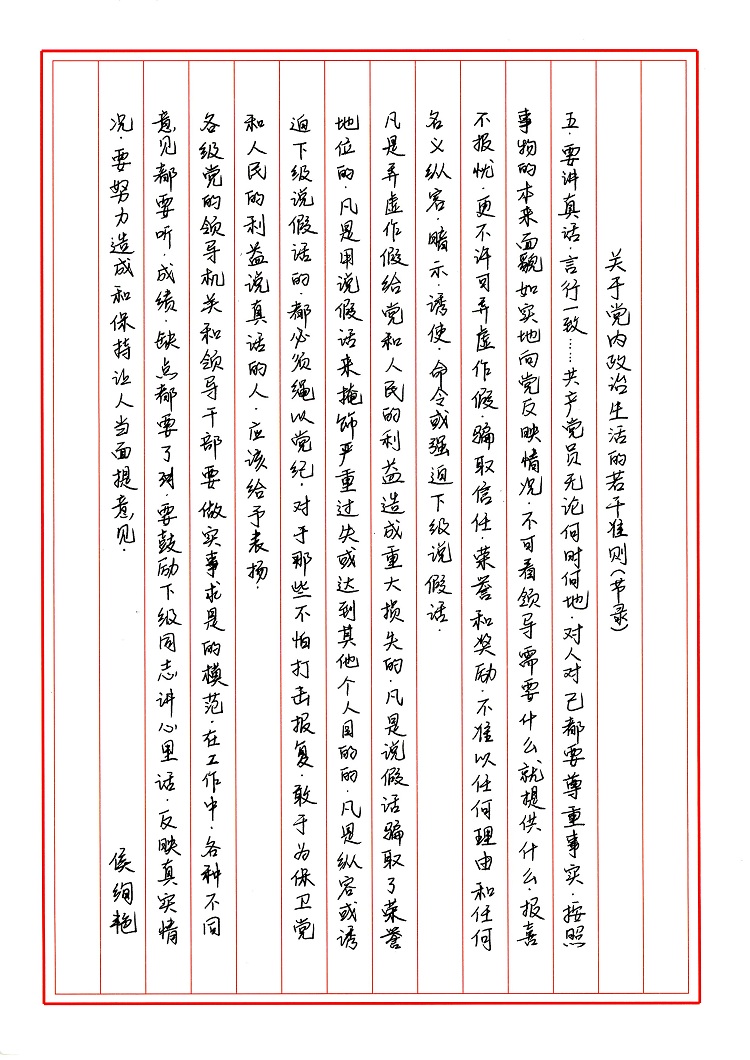 关于党内政治生活的若干准则(节录)
五·要讲真话·言行一致……共产党员无论何时何地·对人对己都要尊重事实·按照
事物的本来面貌如实地向党反映情况·不可看领导需要什么就提供什么·报喜
不报忧·更不许可弄虚作假·骗取信任·荣誉和奖励·不准以任何理由和任何
名义纵容·暗示·诱使·命令或强迫下级说假话·
凡是弄虚作假给党和人民的利益造成重大损失的·凡是说假话骗取了荣誉
地位的·凡是用说假话来掩饰严重过失或达到其他个人目的的·凡是纵容或诱
迫下级说假话的·都必须绳以党纪·对于那些不怕打击报复·敢于为保卫党
和人民的利益说真话的人·应该给予表扬·
各级党的领导机关和领导干部要做实事求是的模范·在工作中·各种不同
意见都要听·成绩·缺点都要了对·要鼓励下级同志讲心里话·反映真实情
况·要努力造成和保持让人当面提意见·
侯绚艳